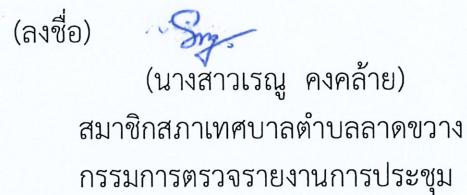 (ลงชื่อ)
(นางสาวเรณู คงคล้าย)
สมาชิกสภาเทศบาลตำบลลาดขวาง
กรรมการตรวจรายงานการประชุม